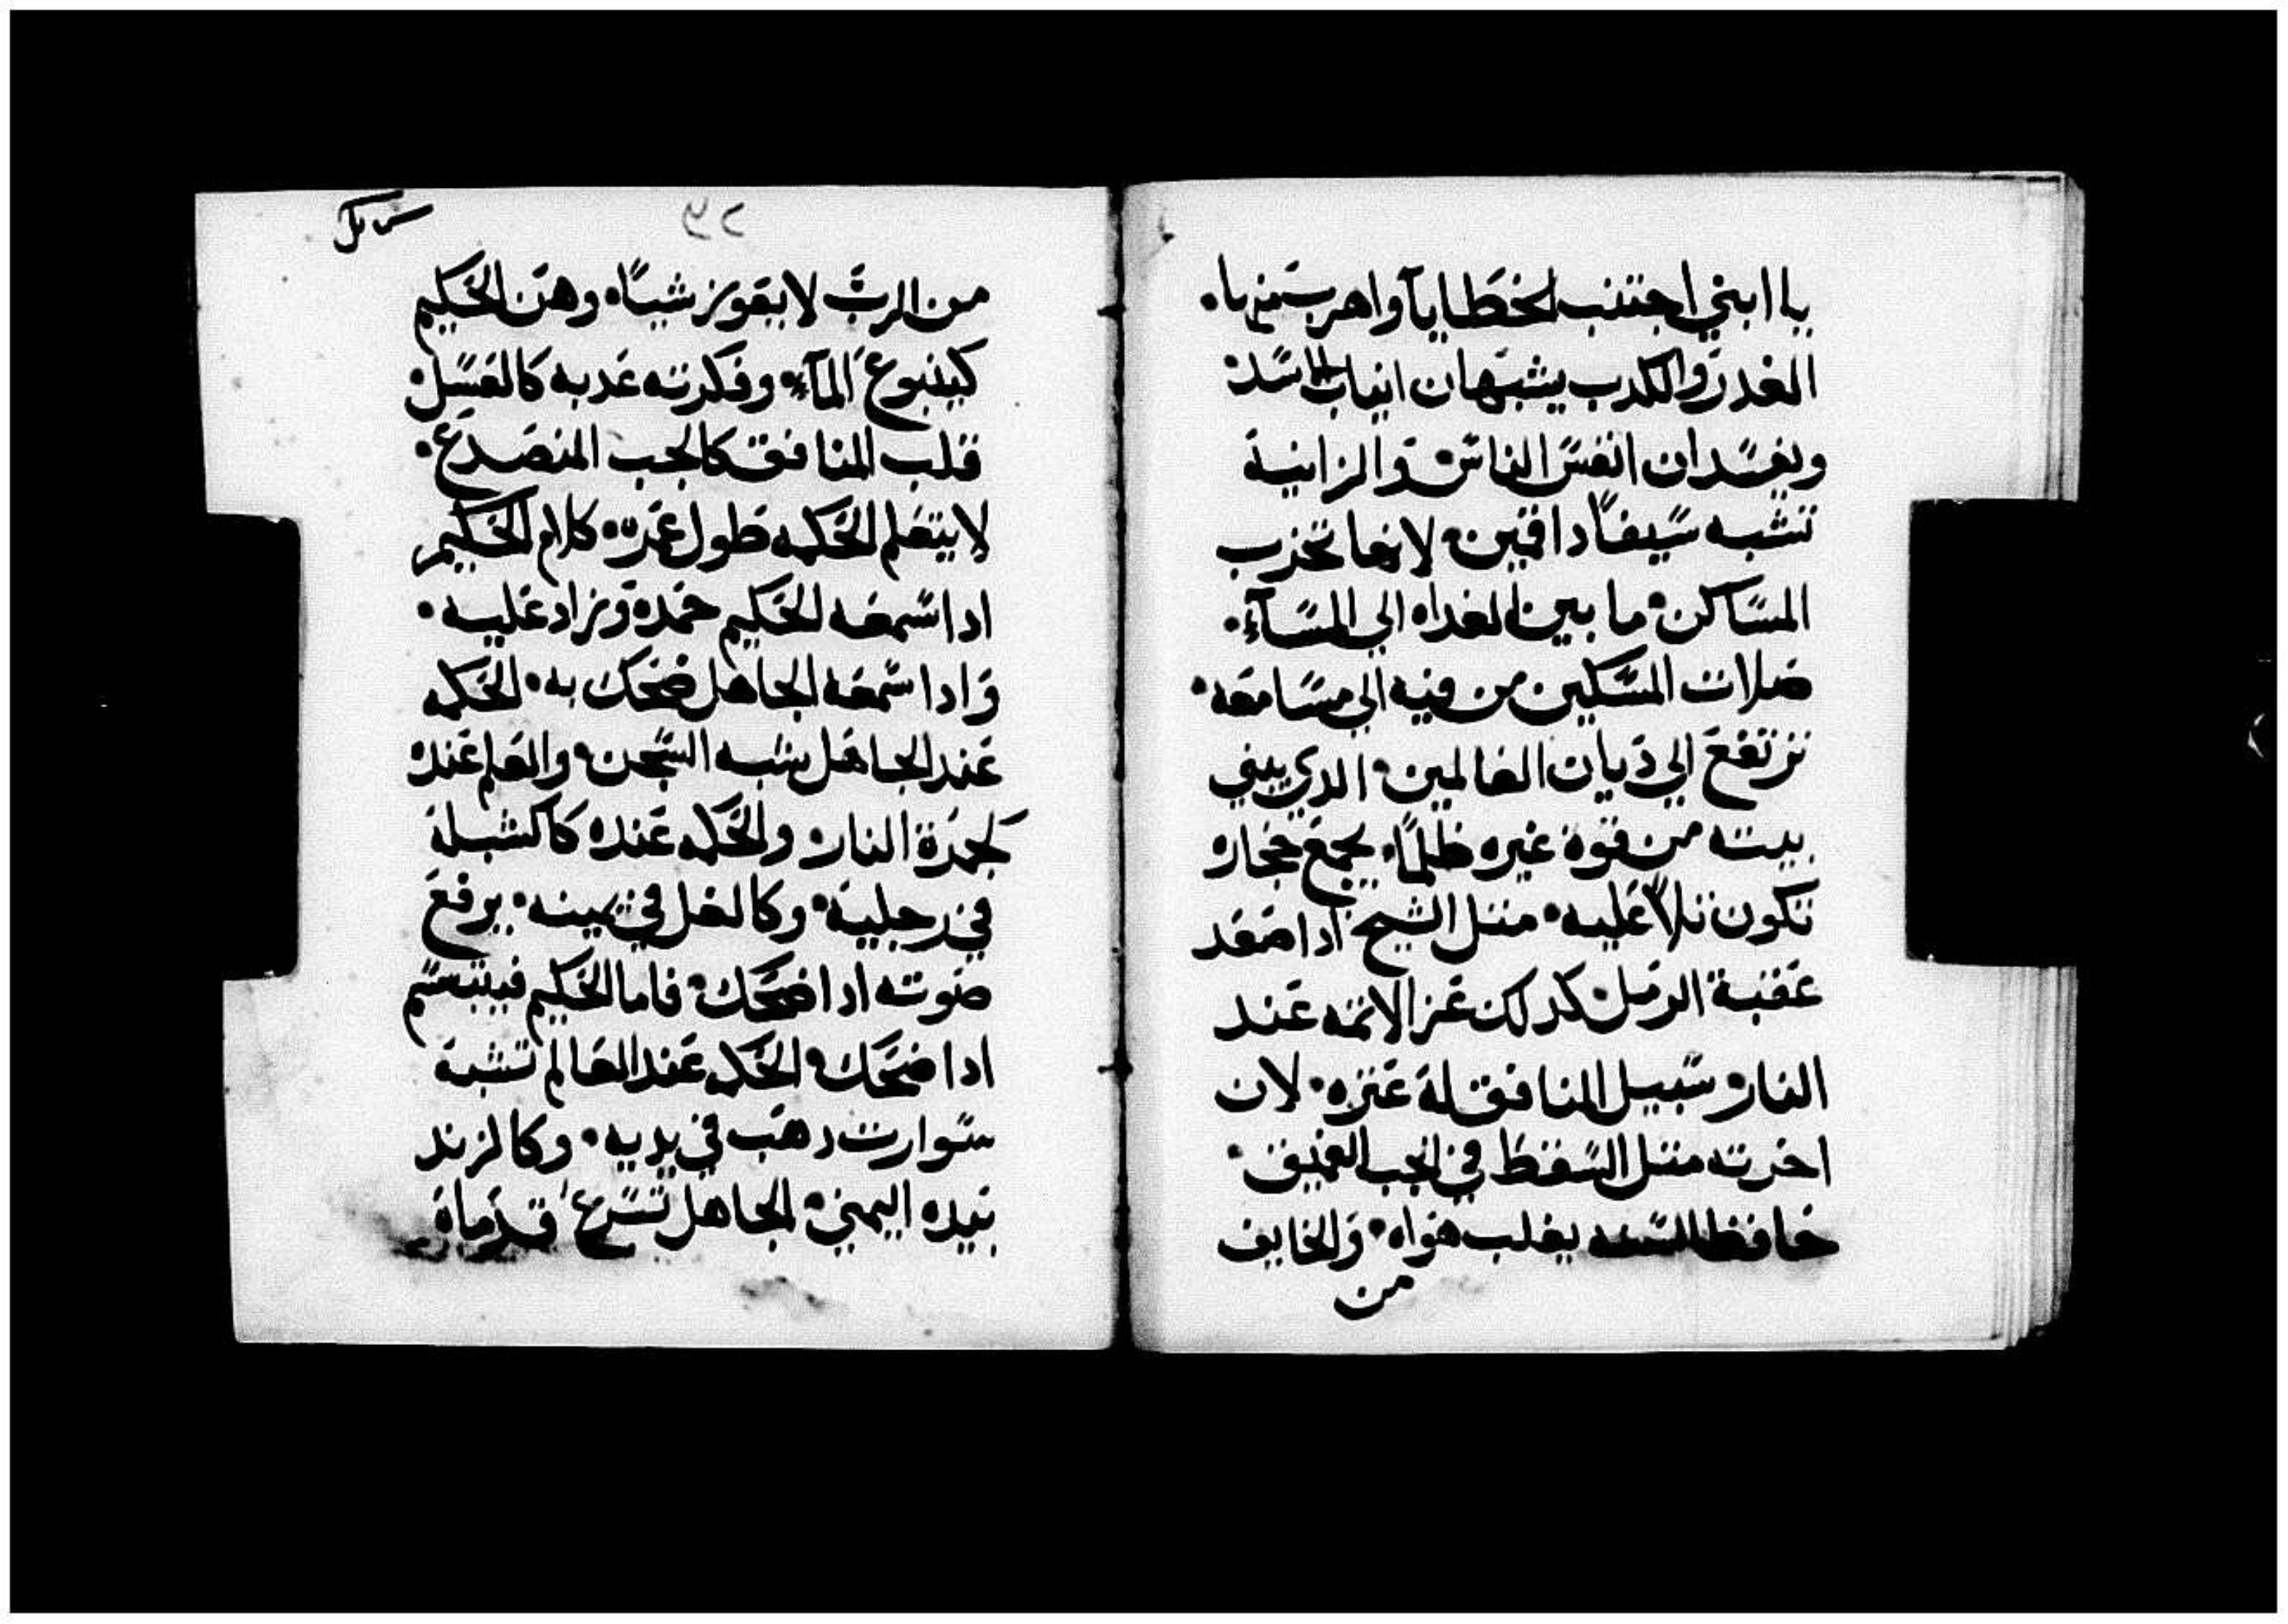 يا ابني اجتنب الخطايا واهرب منها
الغدر والكدب يشبهان انياب الاسد
ويفسدان انفس الناس والزانية
تشبه سيفا دا فمين لانها تخرب
المساكن ما بين الغداه الي المساء
صلات المسكين من فيه الي مسامعه
ترتفع الي ديان العالمين الدي يبني
بيته من قوة غيره ظلما يجمع حجاره
تكون تلا عليه مثل الشيخ ادا صعد
عقبة الرمل كدلك عز الاتمه عند
النار سبيل المنافق لة عتره لان
اخرته مثل السقط في الجب العميق
حافظ السنه يغلب هواه والخايف
من
٢٩
من الرب لا يعوز شيا وهن الحكيم
كينبوع الماء وفكرته عدبه كالعسل
قلب المنافق كالجب المنصدع
لا يتعلم الحكمه طول عمره كلام الحكيم
ادا سمعه الحكيم حمده وزاد عليه
وادا سمعه الجاهل ضحك به الحكمه
عند الجاهل شبه السجن والعلم عنده
كجمرة النار والحكمه عنده كالشبلة
في رجلية وكالغل في يمينه يرفع
صوته ادا ضحك فاما الحكيم فيتبسم
ادا ضحك الحكمه عند العالم تشبة
سوارت دهب في يديه وكالزند
بيده اليمني الجاهل تسرع قدماة